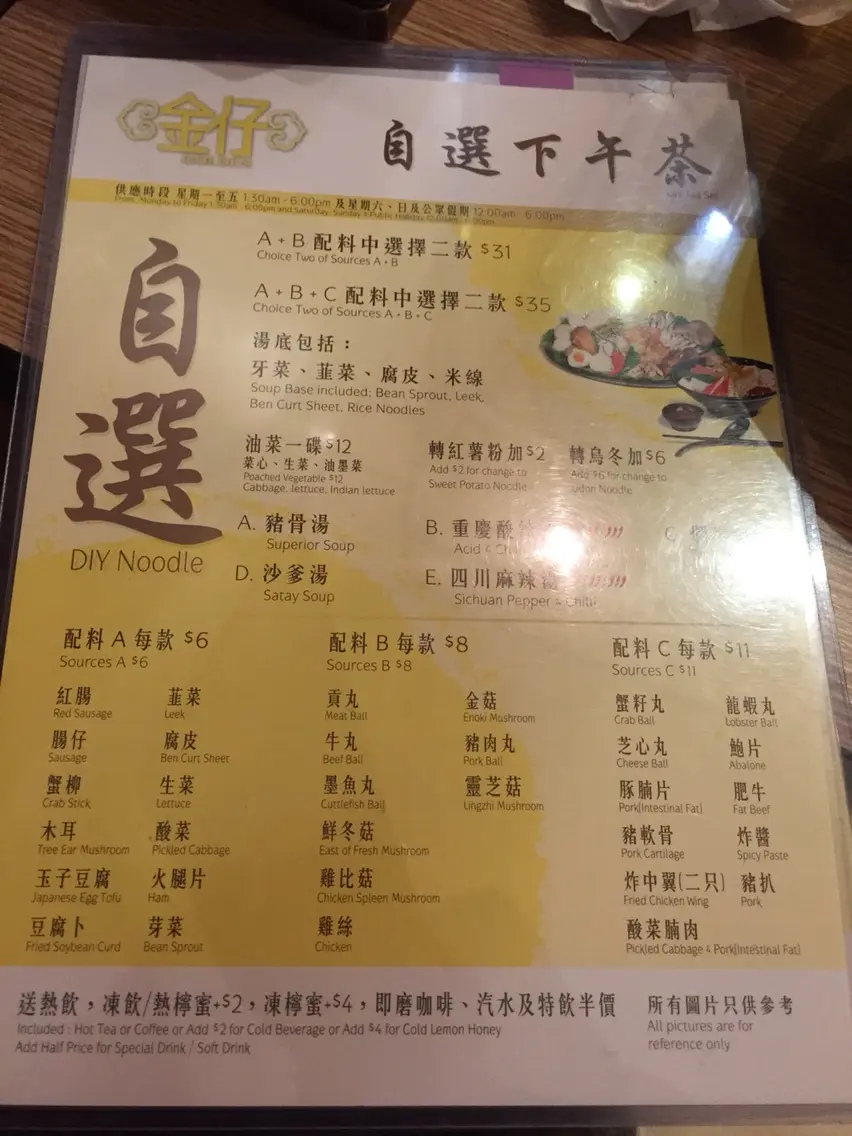 金仔
自選下午茶
供應時段 星期一至五 1:30am - 6:00pm 及星期六、日及公眾假期 12:00am - 6:00pm
自選
DIY Noodle
A + B 配料中選擇二款 $31
Choice Two of Sources A + B
A + B + C 配料中選擇二款 $35
Choice Two of Sources A + B + C
湯底包括：
牙菜、韮菜、腐皮、米線
Soup Base included: Bean Sprout, Leek,
Ben Curt Sheet, Rice Noodles
油菜一碟 $12
菜心、生菜、油墨菜
Poached Vegetable $12
Cabbage, lettuce, Indian lettuce
轉紅薯粉加 $2
Add $2 for change to
Sweet Potato Noodle
轉烏冬加 $6
Add $6 for change to
Udon Noodle
A. 豬骨湯
Superior Soup
B. 重慶酸
Acid &
C.
D. 沙爹湯
Satay Soup
E. 四川麻辣湯
Sichuan Pepper & Chilli
配料 A 每款 $6
Sources A $6
紅腸 韮菜
Red Sausage Leek
腸仔 腐皮
Sausage Ben Curt Sheet
蟹柳 生菜
Crab Stick Lettuce
木耳 酸菜
Tree Ear Mushroom Pickled Cabbage
玉子豆腐 火腿片
Japanese Egg Tofu Ham
豆腐卜 芽菜
Fried Soybean Curd Bean Sprout
配料 B 每款 $8
Sources B $8
貢丸 金菇
Meat Ball Enoki Mushroom
牛丸 豬肉丸
Beef Ball Pork Ball
墨魚丸 靈芝菇
Cuttlefish Ball Lingzhi Mushroom
鮮冬菇
East of Fresh Mushroom
雞比菇
Chicken Spleen Mushroom
雞絲
Chicken
配料 C 每款 $11
Sources C $11
蟹籽丸 龍蝦丸
Crab Ball Lobster Ball
芝心丸 鮑片
Cheese Ball Abalone
豚腩片 肥牛
Pork(Intestinal Fat) Fat Beef
豬軟骨 炸醬
Pork Cartilage Spicy Paste
炸中翼(二只) 豬扒
Fried Chicken Wing Pork
酸菜腩肉
Pickled Cabbage & Pork(Intestinal Fat)
送熱飲，凍飲/熱檸蜜+$2，凍檸蜜+$4，即磨咖啡、汽水及特飲半價
Included : Hot Tea or Coffee or Add $2 for Cold Beverage or Add $4 for Cold Lemon Honey
Add Half Price for Special Drink / Soft Drink
所有圖片只供參考
All pictures are for
reference only